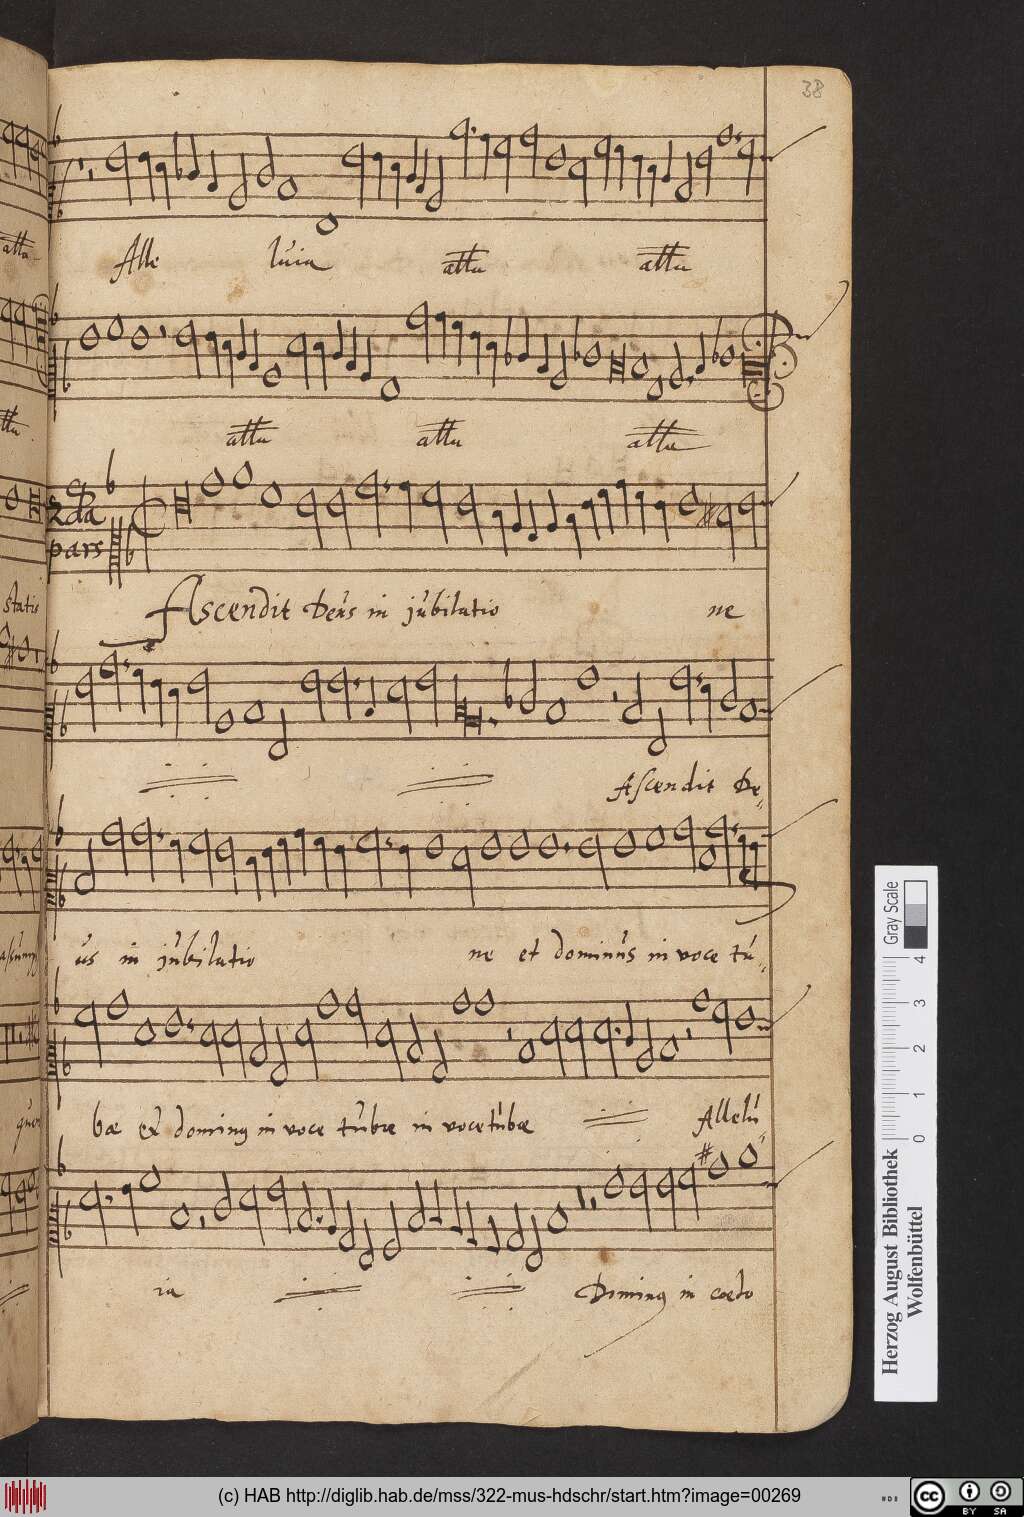 38
Alle luia alla alla
alla alla alla
2da
pars
Ascendit Deus in jubilatio ne
Ascendit De-
us in jubilatio ne et dominus in voce tu-
bae et dominus in voce tubae in voce tubae Allelu-
ia Dominus in coelo
Herzog August Bibliothek
Wolfenbüttel
Gray Scale
0 1 2 3 4
(c) HAB http://diglib.hab.de/mss/322-mus-hdschr/start.htm?image=00269
cc BY SA